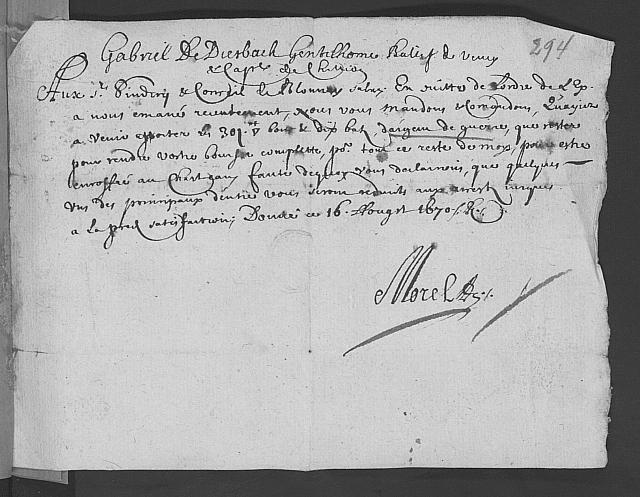 294
Gabriel De Diesbach Gentilhome Balif de Vevey
& Capne de Chillion
Aux Sr Sindicq & Conseil de Blonnay Salut, En suitte de Lordre de L Ex.
a nous emané recentement, Nous vous mandons & comandons, Quayiez
a venir apporter les 301 & dix batz dargent de guerre, que reste
pour rendre vostre bourse complette, po tout ce reste de mois, pour estre
encoffré au Chasteau faute dequoy vous declairons, que quelques
uns des principaux dentre vous seront reduits aux arrest jusques
a la pred satisfaction, Donné ce 16. Aougst 1670
Morel